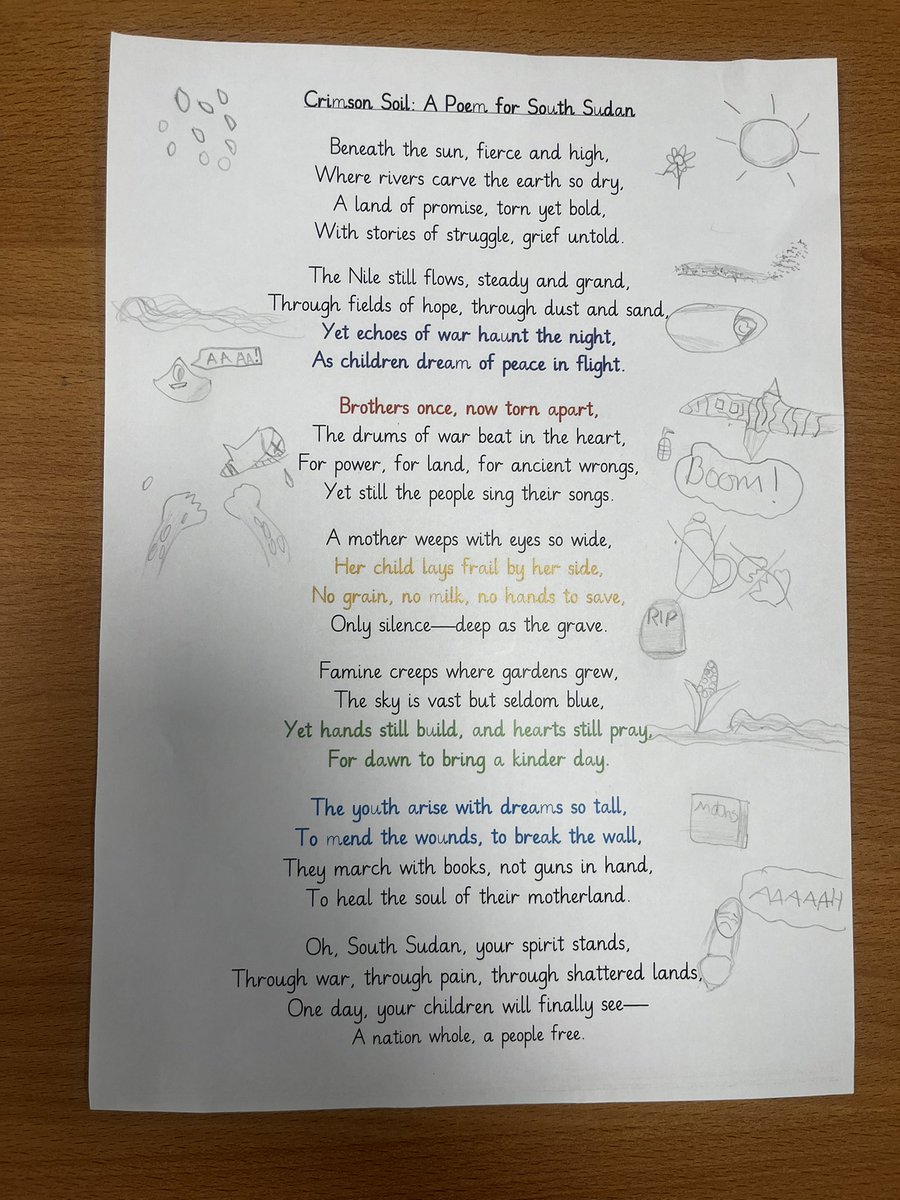 Crimson Soil: A Poem for South Sudan
Beneath the sun, fierce and high,
Where rivers carve the earth so dry,
A land of promise, torn yet bold,
With stories of struggle, grief untold.
The Nile still flows, steady and grand,
Through fields of hope, through dust and sand,
Yet echoes of war haunt the night,
AAAA!
As children dream of peace in flight.
Brothers once, now torn apart,
The drums of war beat in the heart,
For power, for land, for ancient wrongs,
BOOM!
Yet still the people sing their songs.
A mother weeps with eyes so wide,
Her child lays frail by her side,
No grain, no milk, no hands to save,
RIP
Only silence—deep as the grave.
Famine creeps where gardens grew,
The sky is vast but seldom blue,
Yet hands still build, and hearts still pray,
For dawn to bring a kinder day.
The youth arise with dreams so tall,
To mend the wounds, to break the wall,
They march with books, not guns in hand,
To heal the soul of their motherland.
AAAAAH
Oh, South Sudan, your spirit stands,
Through war, through pain, through shattered lands,
One day, your children will finally see—
A nation whole, a people free.